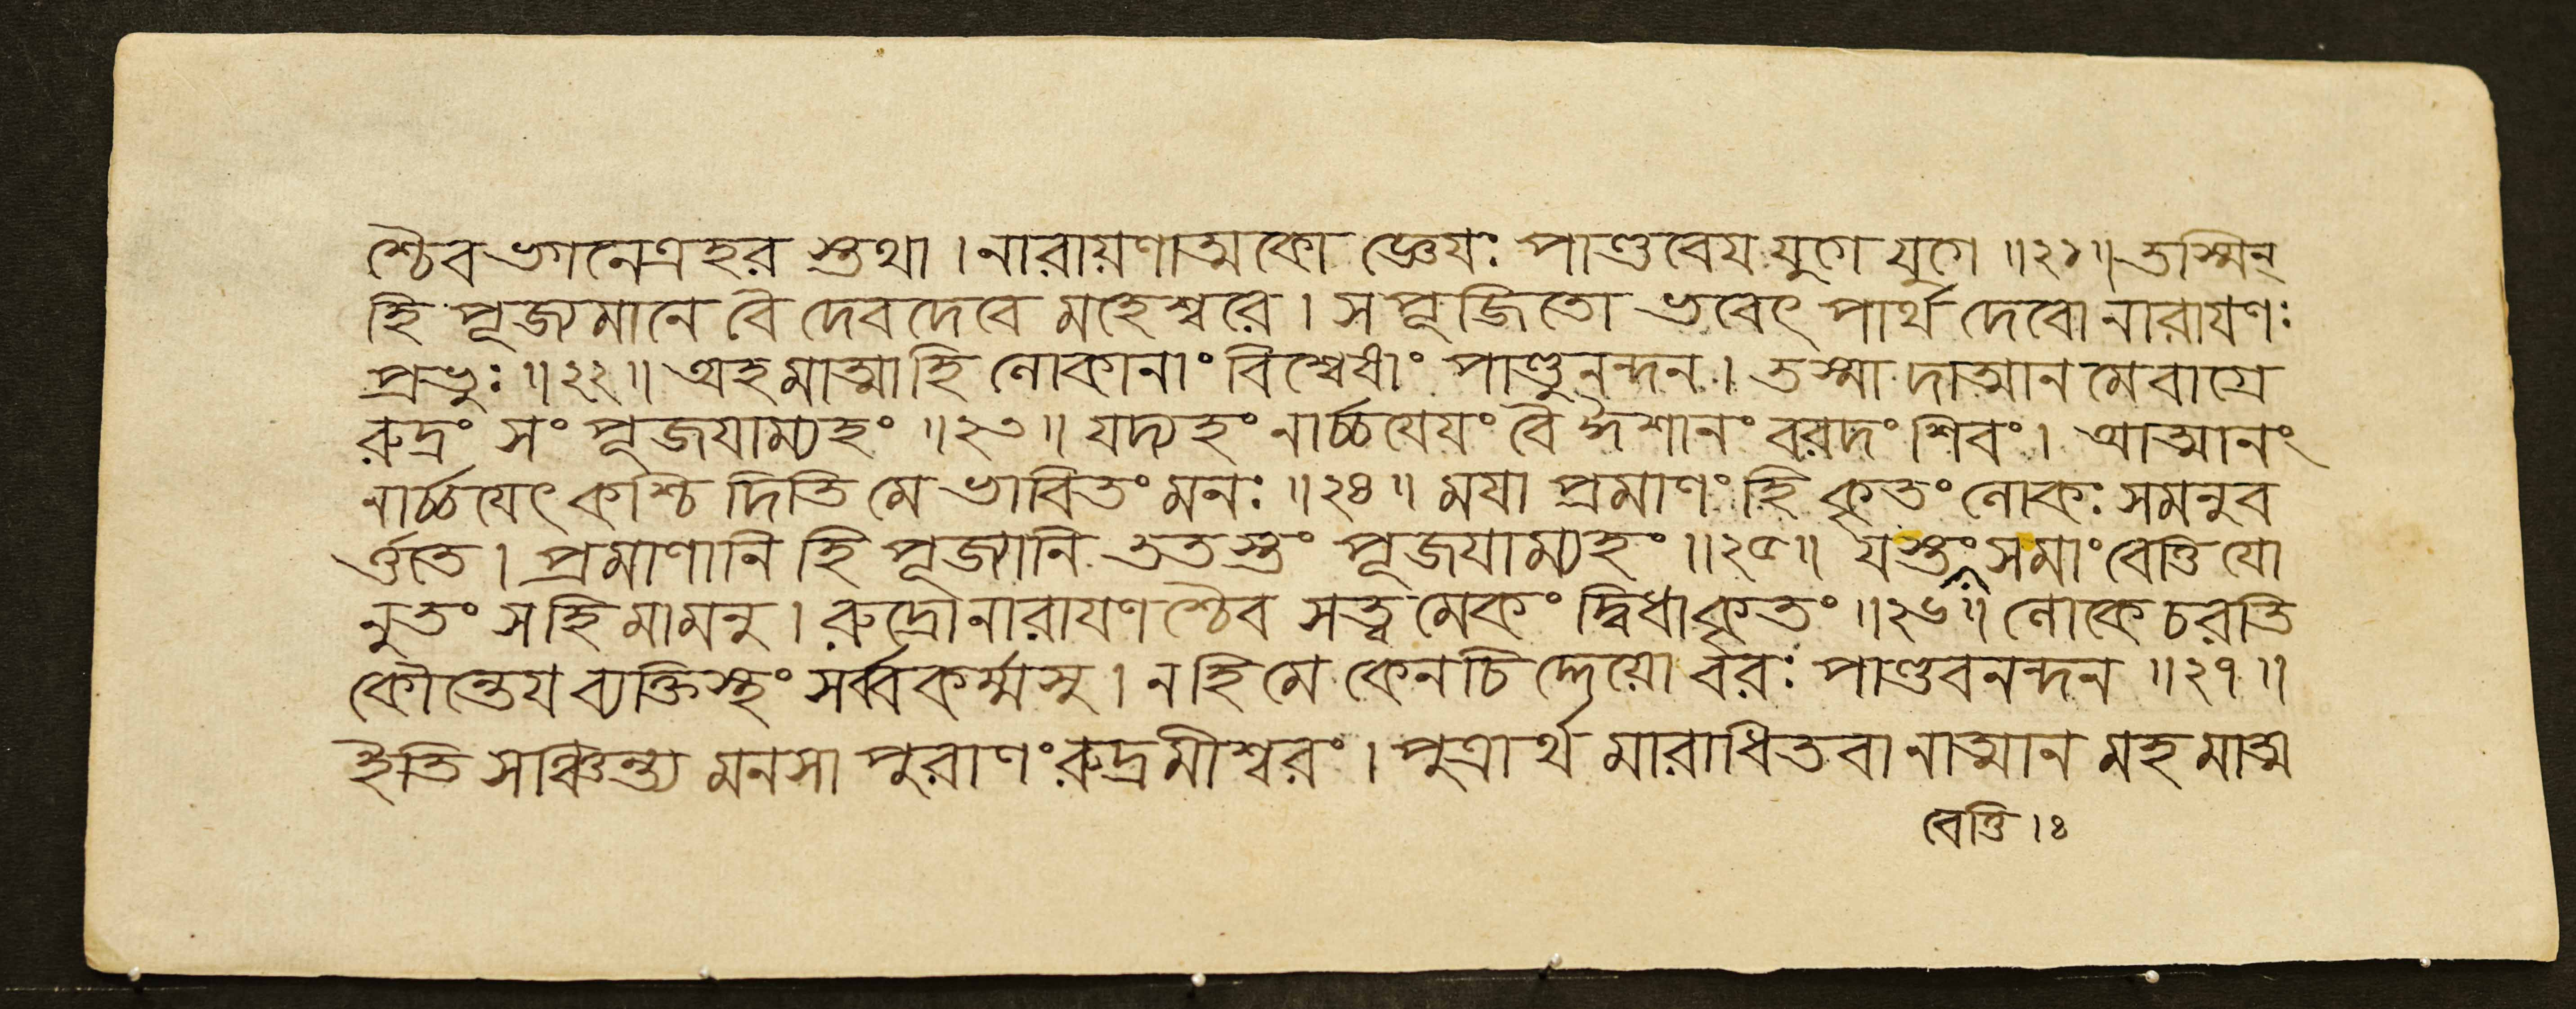 শ্চৈব ভগনেত্রহর স্তুথা । নারায়ণাত্মকো জ্ঞেযঃ পাণ্ডবেয যুগে যুগে ॥২১॥ তস্মিন্
হি পূজ্যমানে বৈ দেবদেবে মহেশ্বরে । সপূজিতো ভবেৎ পার্থ দেবো নারাযণঃ
প্রভুঃ ॥২২॥ অহমাত্মাহি লোকানাং বিশ্বেষাং পাণ্ডুনন্দন । তস্মা দাত্মান মেবাগ্রে
রুদ্রং সংপূজযাম্যহং ॥২৩॥ যদ্যহং নার্চ্চযেযং বৈ ঈশানং বরদং শিবং । আত্মানং
নার্চ্চযেৎ কশ্চি দিতি মে ভাবিতং মনঃ ॥২৪॥ মযা প্রমাণং হি কৃতং লোকঃ সমনুব
র্ত্ততে । প্রমাণানি হি পূজ্যানি ততস্তং পূজযাম্যহং ॥২৫॥ যস্তং সমাং বেত্তি যো
নুতং সহি মামনু । রুদ্রোনারাযণ শ্চৈব সত্ত্ব মেকং দ্বিধাকৃতং ॥২৬॥ লোকে চরতি
কৌন্তেয ব্যক্তিস্থং সর্ব্বকর্ম্মসু । নহি মে কেনচি দ্দেয়ো বরঃ পাণ্ডবনন্দন ॥২৭॥
ইতি সঞ্চিন্ত্য মনসা পুরাণং রুদ্রমীশ্বরং । পুত্রার্থ মারাধিতবা নাত্মান মহ মাত্ম
বেত্তি ।ঃ